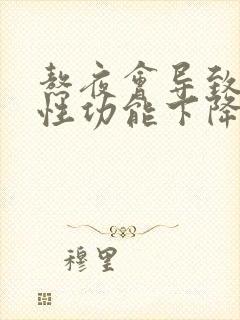 熬夜會导致
性功能下降
穆里